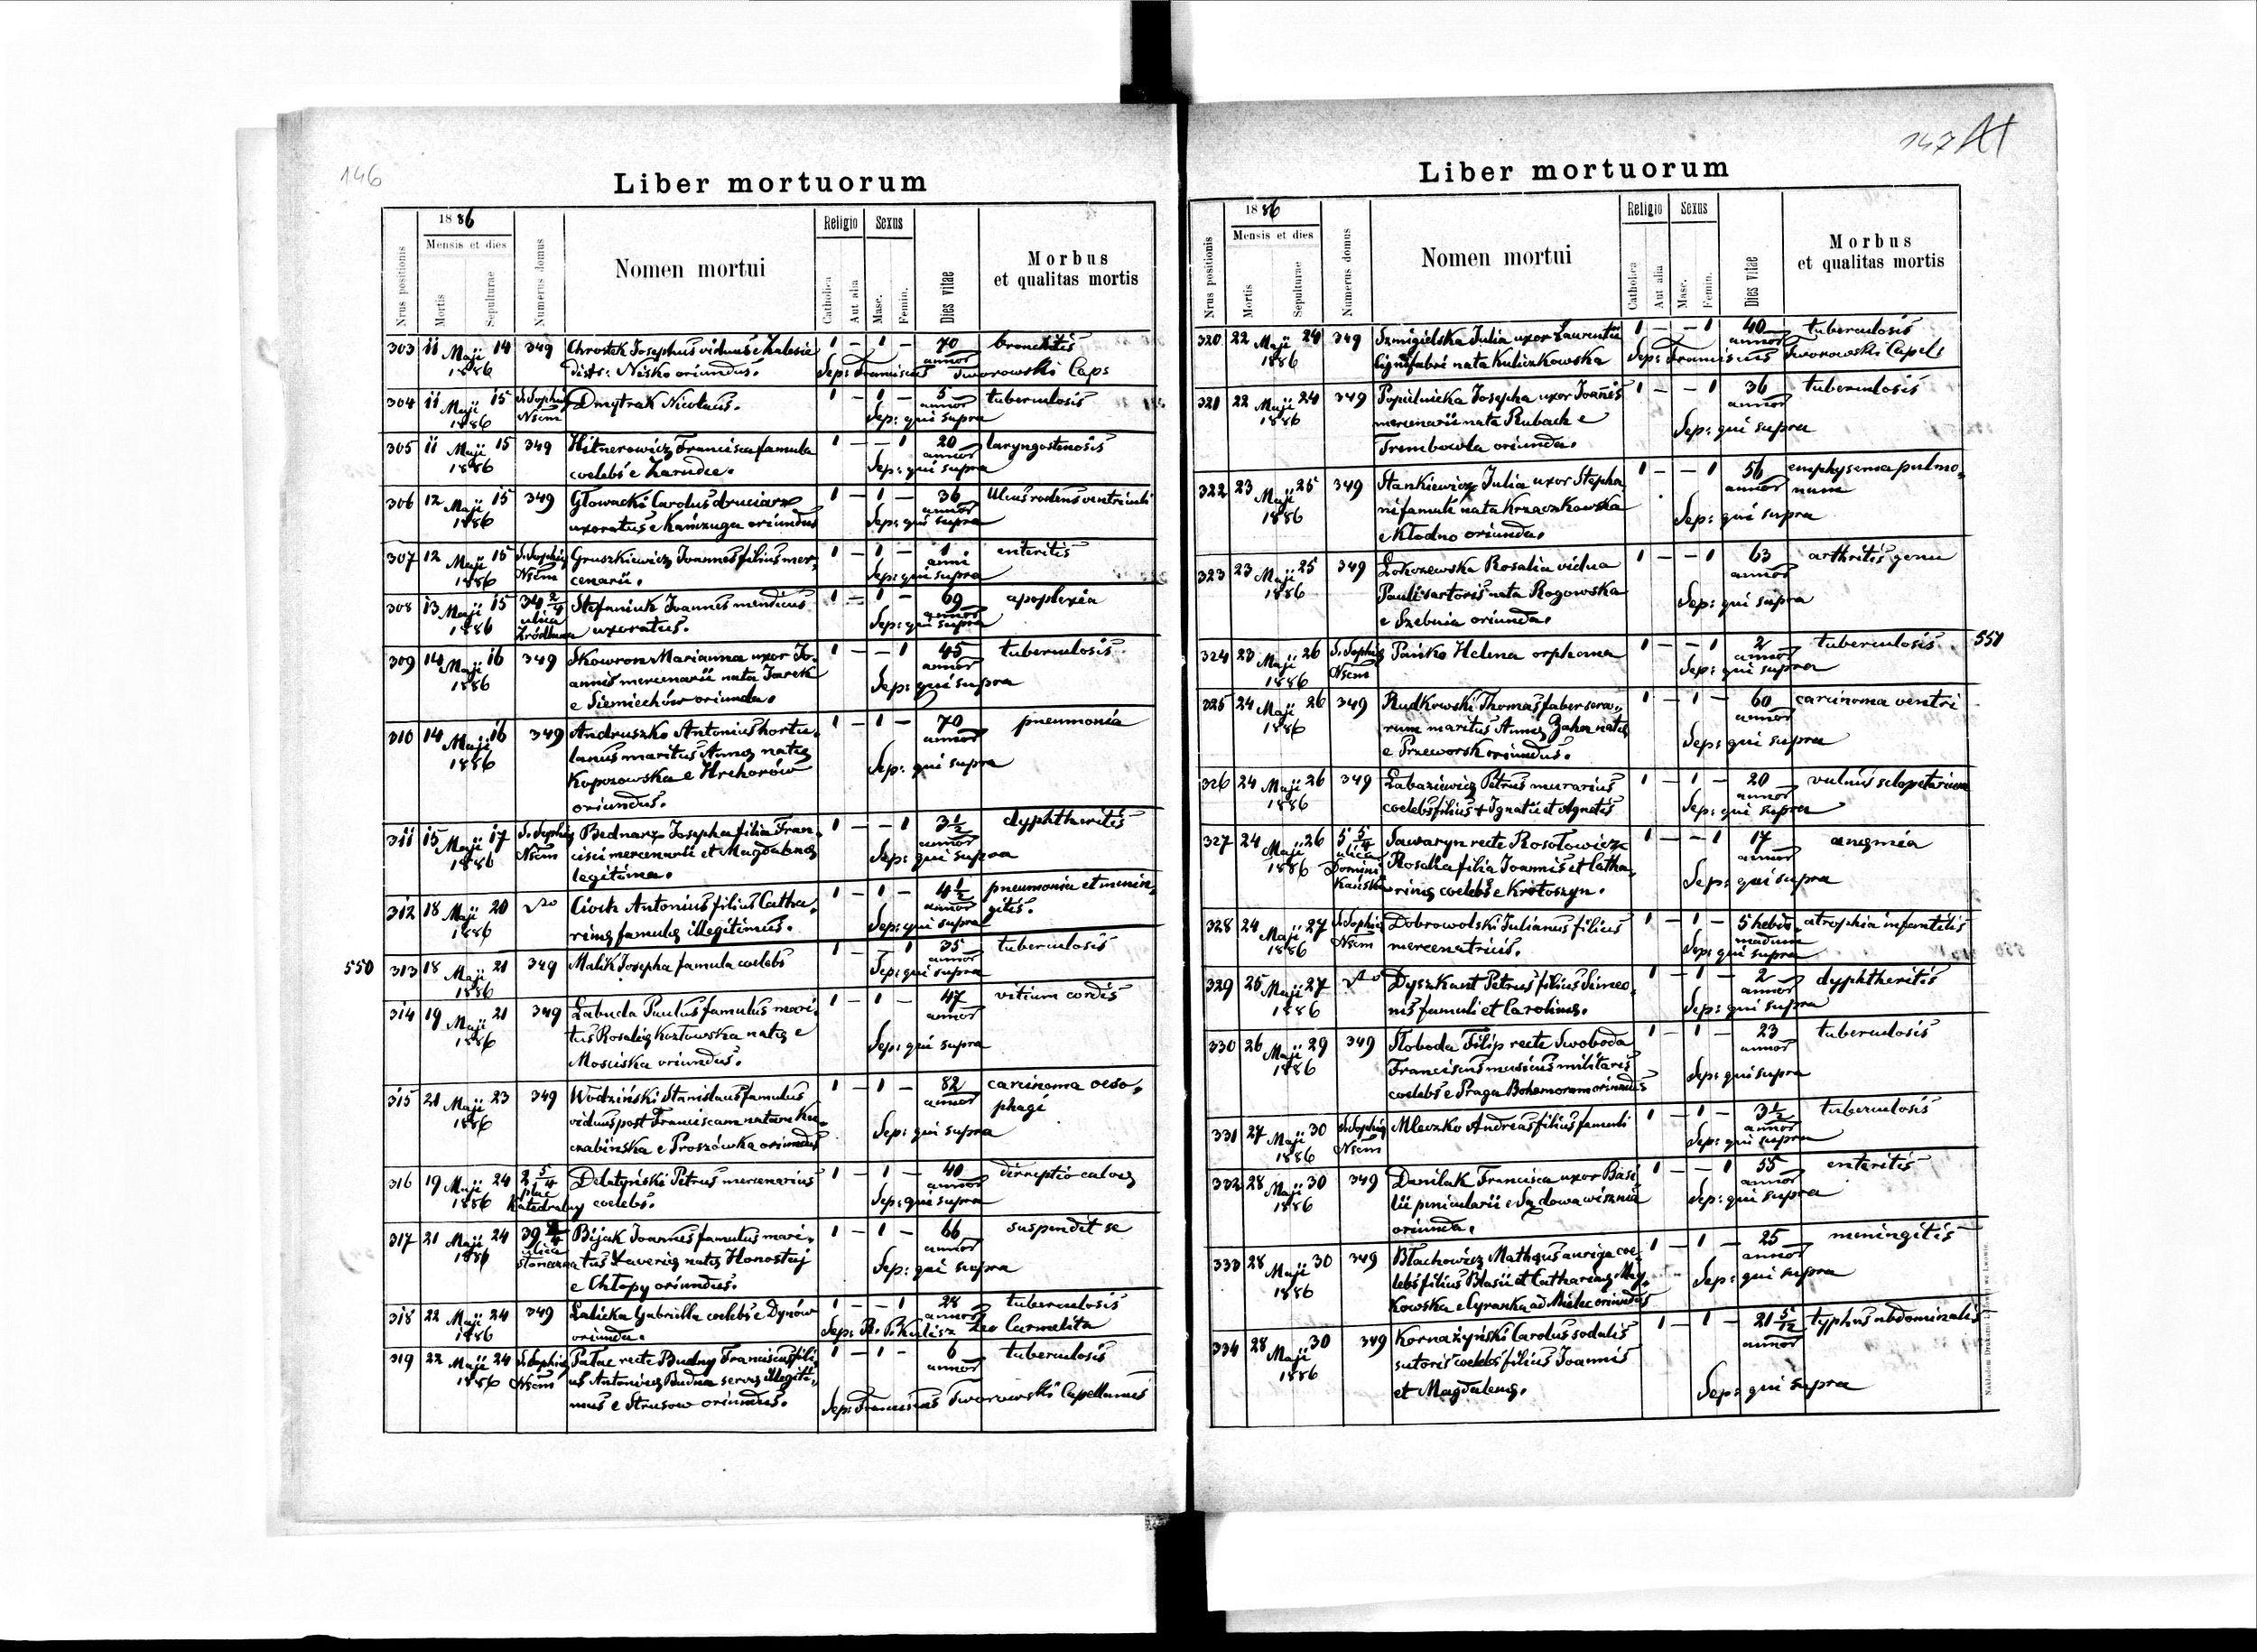 146
Liber mortuorum
Nrus positionis
1886
Mensis et dies
Mortis
Sepulturae
Numerus domus
Nomen mortui
Religio
Catholica
Aut alia
Sexus
Masc.
Femin.
Dies vitae
Morbus
et qualitas mortis
303 11 Maji 14 349 Chrostek Josephus viduus e Zalesie 1 — 1 — 70 bronchitis
1886 distr: Nisko oriundus. annor
Sep: Franciscus Tworowski Cap:
304 11 Maji 15 S. Sophia Dmytrak Nicolaus. 1 — 1 — 5 tuberculosis
1886 Nsem annor
Sep: qui supra
305 11 Maji 15 349 Hitnerowicz Francisca famula 1 — — 1 20 laryngostenosis
1886 coelebs e Zarudce. annor
Sep: qui supra
306 12 Maji 15 349 Głowacki Carolus druciarz 1 — 1 — 36 Ulcus rodens ventriculi
1886 uxoratus e Kańczuga oriundus annor
Sep: qui supra
307 12 Maji 15 S. Sophia Gruszkiewicz Joannes filius mer, 1 — 1 — 1 enteritis
1886 Nsem cenarii. anni
Sep: qui supra
308 13 Maji 15 34 2/4 Stefaniuk Joannes mendicus 1 — 1 — 69 apoplexia
1886 ulica Źródlana uxoratus. annor
Sep: qui supra
309 14 Maji 16 349 Skowron Marianna uxor Jo, 1 — — 1 45 tuberculosis
1886 annis mercenarii nata Jarek annor
e Siemiechów oriunda.
Sep: qui supra
310 14 Maji 16 349 Andruszko Antonius hortu, 1 — 1 — 70 pneumonia
1886 lanus maritus Annæ natæ annor
Kopczowska e Hrehorów
Sep: qui supra
oriundus.
311 15 Maji 17 S. Sophia Bednarz Josepha filia Fran, 1 — — 1 3 1/2 dyphtheritis
1886 Nsem cisci mercenarii et Magdalenæ annor
legitima.
Sep: qui supra
312 18 Maji 20 dto Cioch Antonius filius Catha, 1 — 1 — 4 1/2 pneumonia et menin,
1886 rinæ famulæ illegitimus. annor gitis.
Sep: qui supra
550 313 18 Maji 21 349 Malik Josepha famula coelebs 1 — — 1 35 tuberculosis
1886 annor
Sep: qui supra
314 19 Maji 21 349 Łabuda Paulus famulus mari, 1 — 1 — 47 vitium cordis
1886 tus Rosaliæ Kozłowska natæ e annor
Mościska oriundus.
Sep: qui supra
315 21 Maji 23 349 Wodziński Stanislaus famulus 1 — 1 — 82 carcinoma oeso,
1886 viduus post Franciscam natam Ku, annor phagi
czabińska e Proszówka oriundus
Sep: qui supra
316 19 Maji 24 2 5/4 Delatyński Petrus mercenarius 1 — 1 — 40 dirreptio calvæ
1886 plac Katedralny coelebs. annor
Sep: qui supra
317 21 Maji 24 39 Bijak Joannes famulus mari, 1 — 1 — 66 suspendit se
1886 ulica Słoneczna tus Xaveriæ natæ Honostaj annor
e Chłopy oriundus.
Sep: qui supra
318 22 Maji 24 349 Łalicka Gabriella coelebs e Dynów 1 — — 1 28 tuberculosis
1886 oriunda. annor
Sep: R. P. Kulisz Leo Carmelita
319 22 Maji 24 S. Sophia Pałac recte Budny Franciscus fili, 1 — 1 — 6 tuberculosis
1886 Nsem us Antoninæ Budna servæ illegiti, annor
mus e Strusow oriundus.
Sep: Franciscus Tworowski Capellanus
147
Liber mortuorum
Nrus positionis
1886
Mensis et dies
Mortis
Sepulturae
Numerus domus
Nomen mortui
Religio
Catholica
Aut alia
Sexus
Masc.
Femin.
Dies vitae
Morbus
et qualitas mortis
320 22 Maji 24 349 Szmigielska Julia uxor Laurentii 1 — — 1 40 tuberculosis
1886 lignifabri nata Kuliczkowska annor
Sep: Franciscus Tworowski Capel:
321 22 Maji 24 349 Popielnicka Josepha uxor Joannis 1 — — 1 36 tuberculosis
1886 mercenarii nata Rubach e annor
Trembowla oriunda.
Sep: qui supra
322 23 Maji 25 349 Stankiewicz Julia uxor Stepha 1 — — 1 56 emphysema pulmo,
1886 ni famuli nata Krzaczkowska annor num
e Kłodno oriunda.
Sep: qui supra
323 23 Maji 25 349 Łokozewska Rosalia vidua 1 — — 1 63 arthritis genu
1886 Pauli sartoris nata Rogowska annor
e Szebnia oriunda.
Sep: qui supra
324 23 Maji 26 S. Sophia Pańko Helena orphana 1 — — 1 2 tuberculosis 551
1886 Nsem annor
Sep: qui supra
325 24 Maji 26 349 Rudkowski Thomas faber sera, 1 — 1 — 60 carcinoma ventri
1886 rum maritus Annæ Zahn natæ annor
e Przeworsk oriundus.
Sep: qui supra
326 24 Maji 26 349 Łabaziewicz Petrus murarius 1 — 1 — 20 vulnus sclopetarium
1886 coelebs filius + Ignatii et Agnetis annor
Sep: qui supra
327 24 Maji 26 5 5/4 Sawaryn recte Rosołowicz 1 — — 1 17 anæmia
1886 ulica Dominikańska Rosalia filia Joannis et Catha, annor
rinæ coelebs e Krotoszyn.
Sep: qui supra
328 24 Maji 27 S. Sophia Dobrowolski Julianus filius 1 — 1 — 5 hebdo, atrophia infantilis
1886 Nsem mercenatricis. madum
Sep: qui supra
329 25 Maji 27 dto Dyszkant Petrus filius Simeo, 1 — 1 — 2 dyphtheritis
1886 nis famuli et Carolinæ. annor
Sep: qui supra
330 26 Maji 29 349 Słoboda Filip recte Swoboda 1 — 1 — 23 tuberculosis
1886 Franciscus musicus militaris annor
coelebs e Praga Bohemorum oriundus
Sep: qui supra
331 27 Maji 30 S. Sophia Mleczko Andreas filius famuli 1 — 1 — 3 1/2 tuberculosis
1886 Nsem annor
Sep: qui supra
332 28 Maji 30 349 Danilak Francisca uxor Basi 1 — — 1 55 enteritis
1886 lii penicularii e Sądowa wisznia annor
oriunda.
Sep: qui supra
333 28 Maji 30 349 Błachowicz Mathæus auriga coe, 1 — 1 — 25 meningitis
1886 lebs filius Blasii et Catharinæ May, annor
kowska e Cyranka ad Mielec oriundus
Sep: qui supra
334 28 Maji 30 349 Kornażyński Carolus sodalis 1 — 1 — 21 5/12 typhus abdominalis
1886 sutoris coelebs filius Joannis annor
et Magdalenæ.
Sep: qui supra